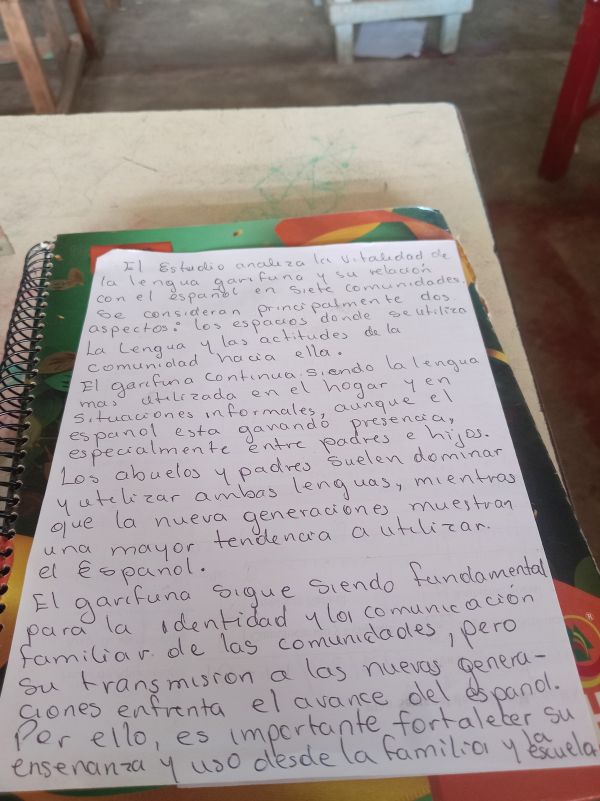 El Estudio analiza la vitalidad de
la lengua garifuna y su relación
con el español en siete comunidades.
se consideran principalmente dos
aspectos: los espacios donde se utiliza
La Lengua y las actitudes de la
comunidad hacia ella.
El garifuna continua siendo la lengua
mas utilizada en el hogar y en
situaciones informales, aunque el
español esta ganando presencia,
especialmente entre padres e hijos.
Los abuelos y padres suelen dominar
y utilizar ambas lenguas, mientras
que la nueva generaciones muestran
una mayor tendencia a utilizar
el Español.
El garifuna sigue siendo fundamental
para la identidad y la comunicación
familiar de las comunidades, pero
su transmision a las nuevas genera-
ciones enfrenta el avance del español.
Por ello, es importante fortalecer su
enseñanza y uso desde la familia y la escuela